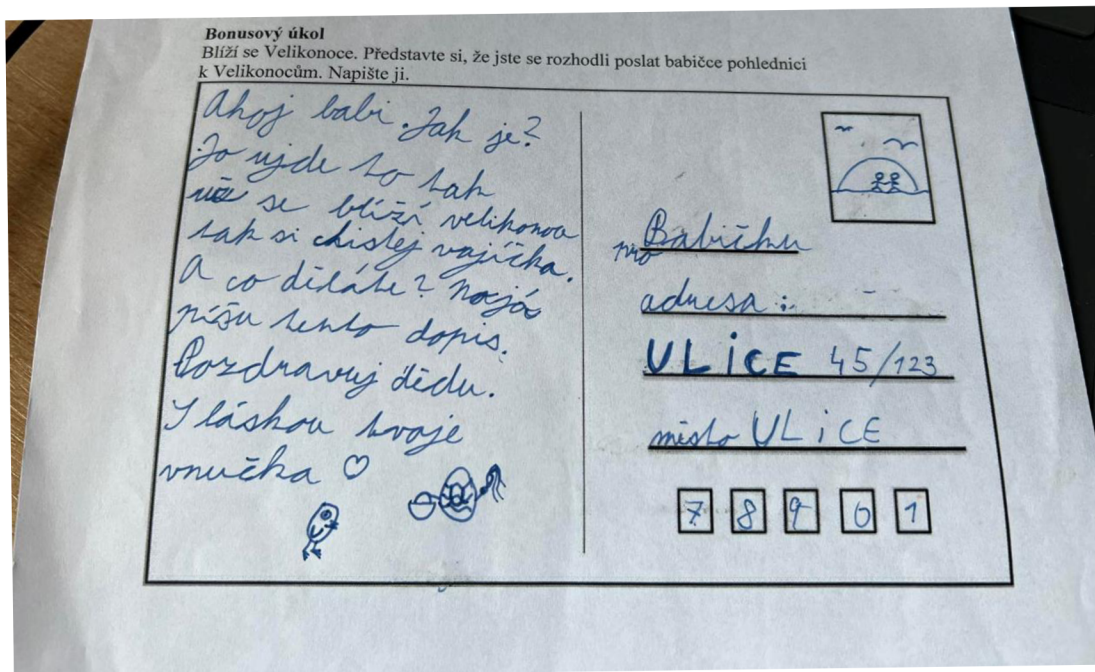 Bonusový úkol
Blíží se Velikonoce. Představte si, že jste se rozhodli poslat babičce pohlednici
k Velikonocům. Napište ji.
Ahoj babi. Jak je?
Jo ujde to tak
už se blíží velikonoce
tak si chistej vajíčka.
A co děláte? No já
píšu tento dopis.
Pozdravuj dědu.
S láskou tvoje
vnučka ♡
pro Babičku
adresa:
ULiCE 45/123
místo ULiCE
7 8 9 0 1